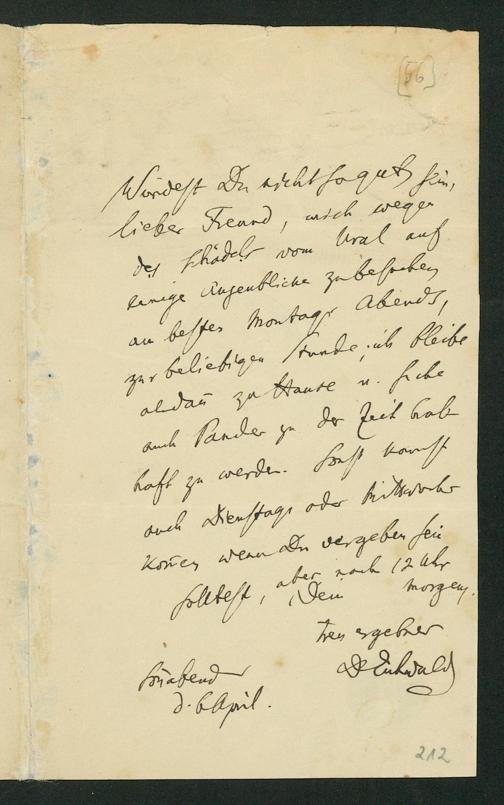 [56]
Würdest Du nicht so gut sein,
lieber Freund, mich wegen
des Schädels vom Ural auf
einige Augenblicke zu besuchen
am besten Montags Abends,
zur beliebigen Stunde; ich bleibe
aldañ zu Hause u. suche
auch Pander zu der Zeit hab-
haft zu werden. Sonst kannst
auch Dienstags oder Mittwochs
kom̅en wenn Du vergeben sein
solltest, aber nach 12 Uhr
morgens.
Dein
treu ergebner
Dr Eichwald
Sonabend
d. 6 April.
212